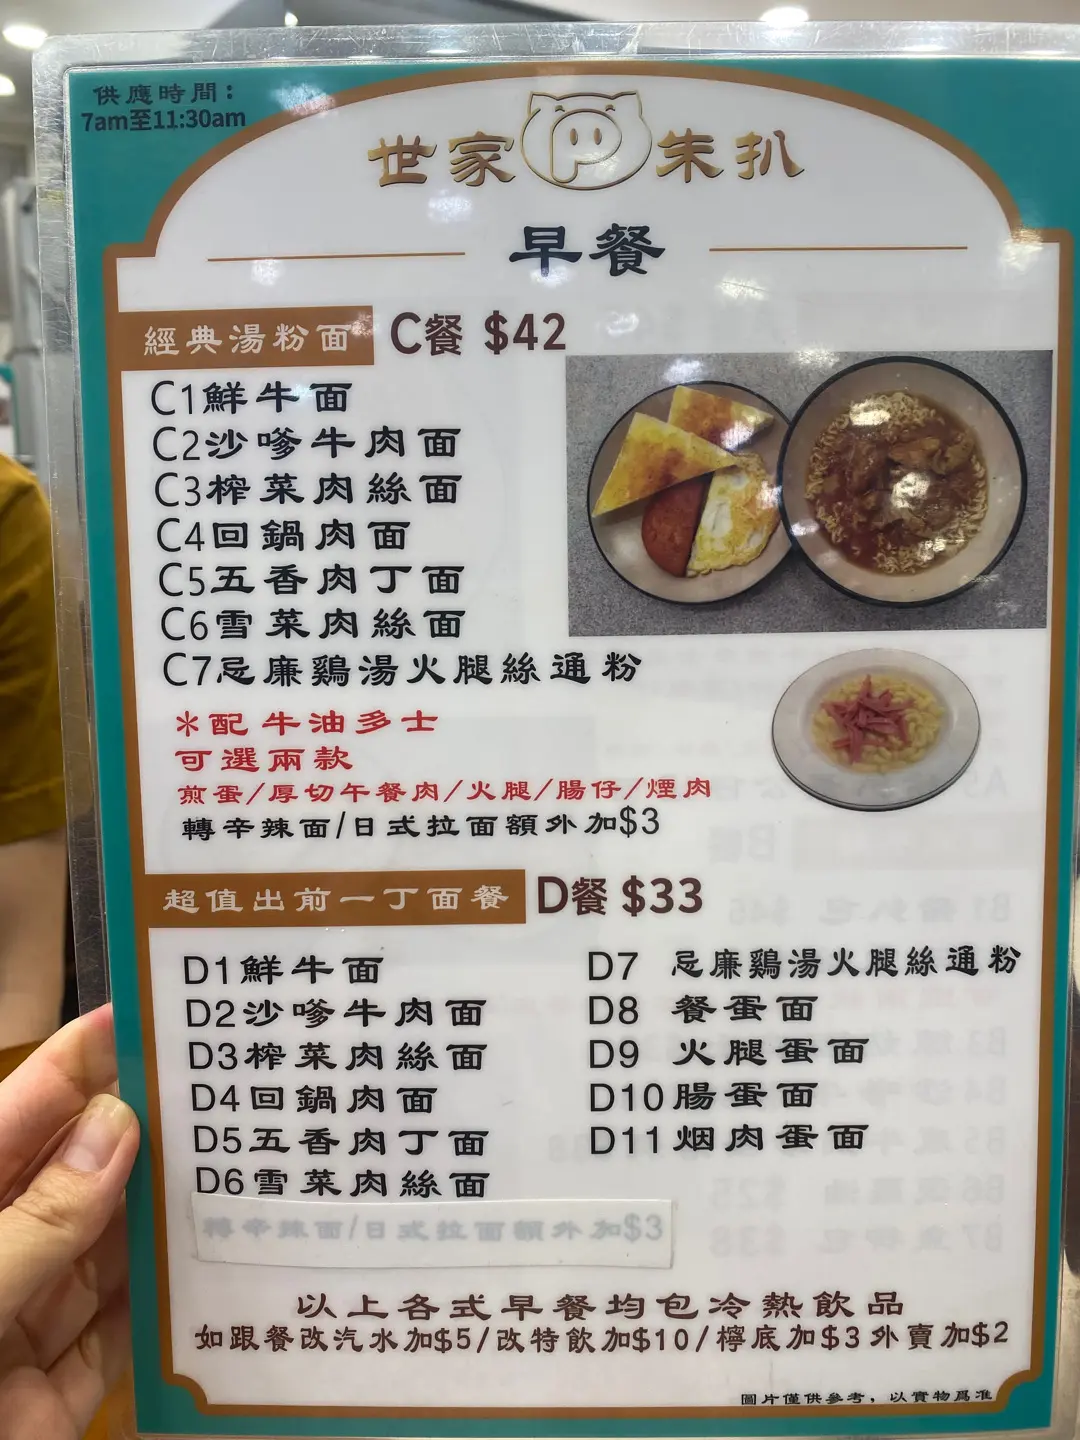 供應時間：
7am至11:30am
世家朱扒
早餐
經典湯粉面 C餐 $42
C1鮮牛面
C2沙嗲牛肉面
C3榨菜肉絲面
C4回鍋肉面
C5五香肉丁面
C6雪菜肉絲面
C7忌廉鷄湯火腿絲通粉
＊配牛油多士
可選兩款
煎蛋/厚切午餐肉/火腿/腸仔/煙肉
轉辛辣面/日式拉面額外加$3
超值出前一丁面餐 D餐 $33
D1鮮牛面
D2沙嗲牛肉面
D3榨菜肉絲面
D4回鍋肉面
D5五香肉丁面
D6雪菜肉絲面
D7 忌廉鷄湯火腿絲通粉
D8 餐蛋面
D9 火腿蛋面
D10腸蛋面
D11烟肉蛋面
轉辛辣面/日式拉面額外加$3
以上各式早餐均包冷熱飲品
如跟餐改汽水加$5/改特飲加$10/檸底加$3外賣加$2
圖片僅供參考，以實物爲准